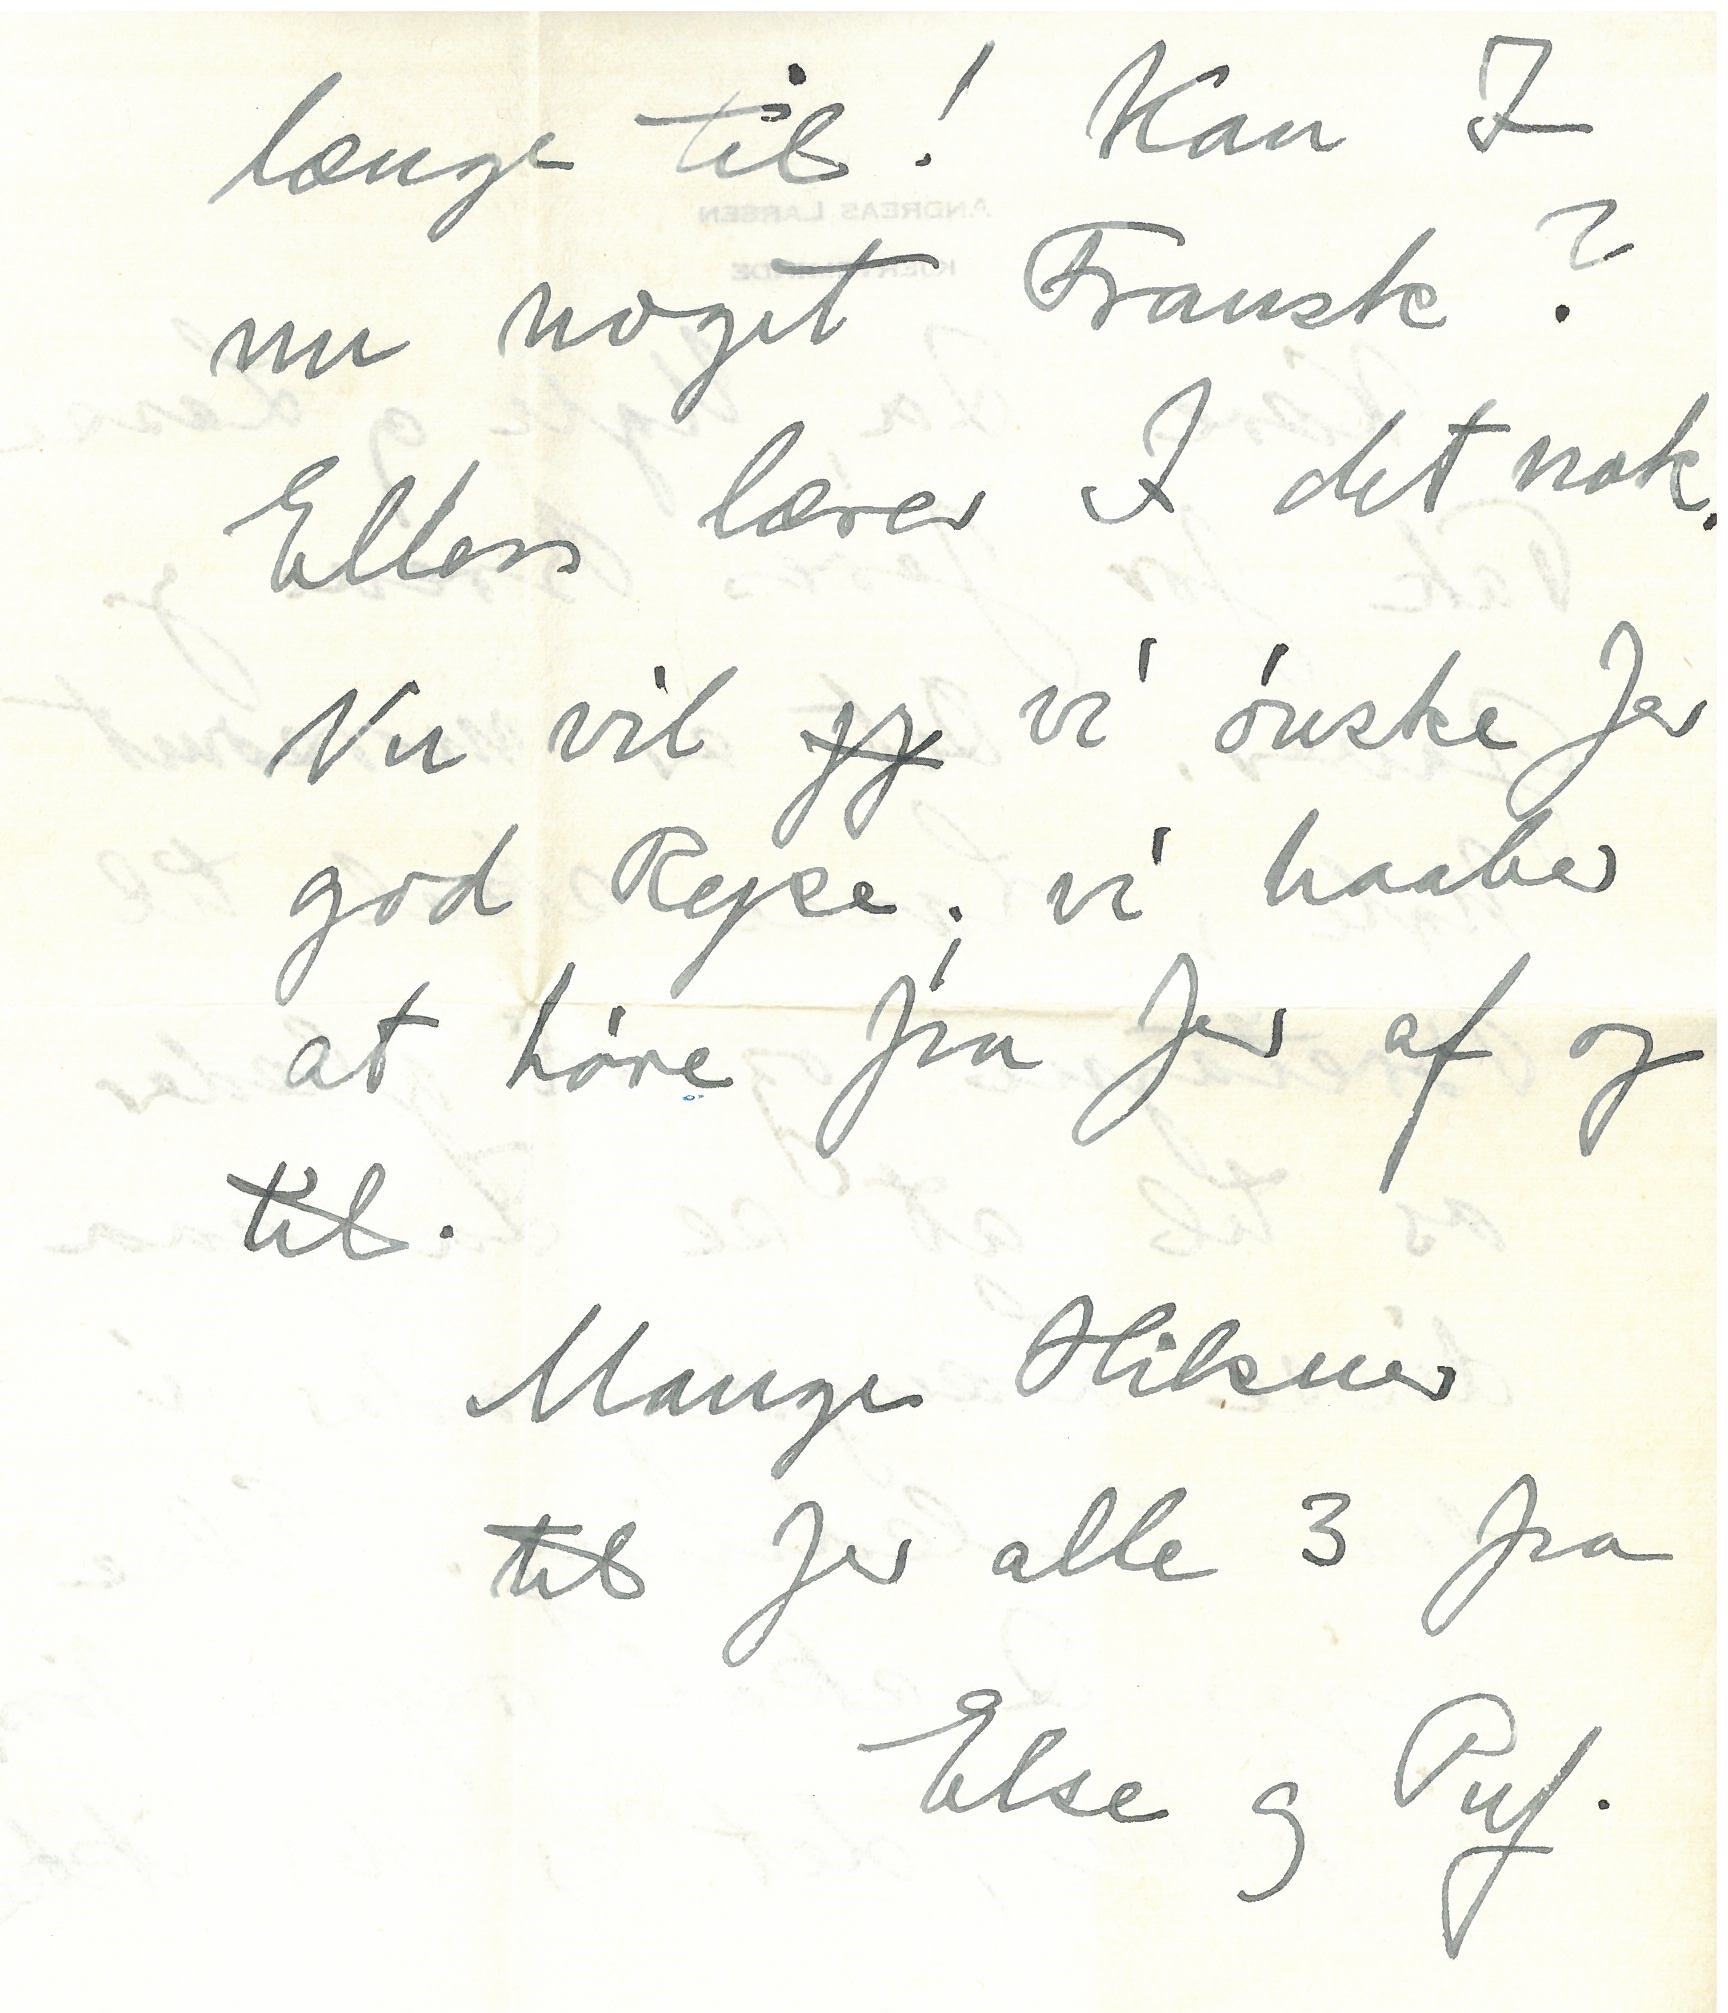 længe til! Kan I
nu noget Fransk?
Ellers lærer I det nok.
Nu vil jeg vi ónske Jer
god Rejse; vi haaber
at hóre fra Jer af og
til.
Mange Hilsner
til Jer alle 3 fra
Else og Puf.
ANDREAS LARSEN
KJERTEMINDE